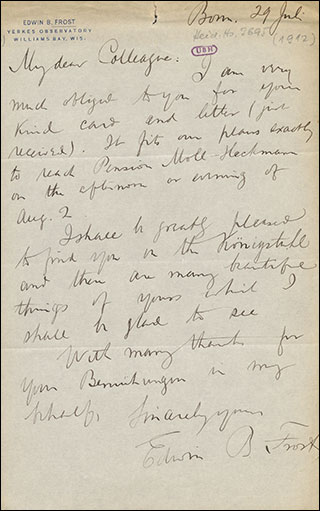 EDWIN B. FROST
YERKES OBSERVATORY
WILLIAMS BAY, WIS.
Bonn. 29 Juli
Heid. Hs. 3695
(1912)
UBH
My dear Colleague: I am very
much obliged to you for your
kind card and letter (just
received). It fits our plans exactly
to reach Pension Moll-Heckmann
on the afternoon or evening of
Aug. 2
I shall be greatly pleased
to find you on the Königstuhl
and there are many beautiful
things of yours which I
shall be glad to see
With many thanks for
your Bemühungen in my
behalf, Sincerely yours
Edwin B Frost